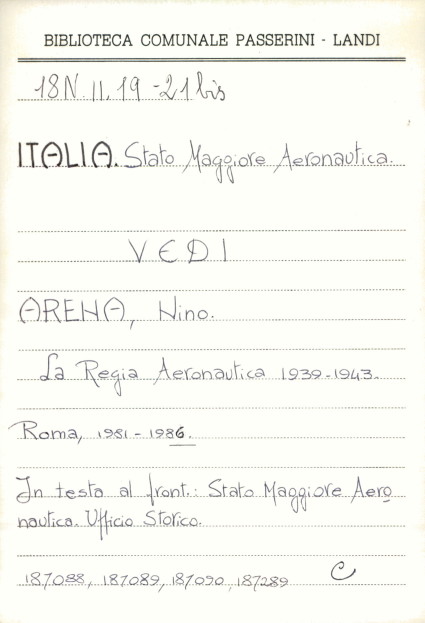 BIBLIOTECA COMUNALE PASSERINI - LANDI
18N II. 19 - 21 bis
ITALIA. Stato Maggiore Aeronautica.
VEDI
ARENA, Nino.
La Regia Aeronautica 1939-1943.
Roma, 1981 - 1986.
In testa al front.: Stato Maggiore Aero
nautica. Ufficio Storico.
187088, 187089, 187090, 187289 C